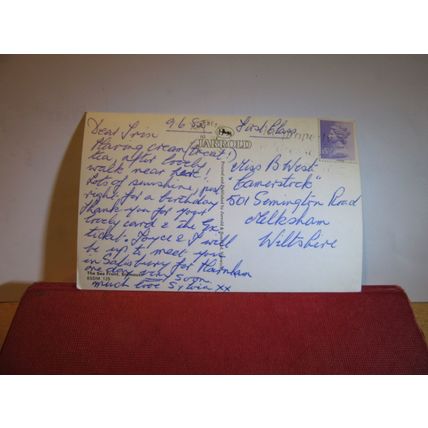 9.6.
First Class
JARROLD
Dear Iris
Having cream (treat!)
tea, after lovely
walk near here!
Lots of sunshine, just
right for a birthday
Thank you for your
lovely card & the
ticket. Joyce & I will
be up to meet you
in Salisbury for Harnham
one day very soon.
much love Sylvia xx
Miss B West
"Camerstock"
501 Semington Road
Melksham
Wiltshire
The Sea Front,